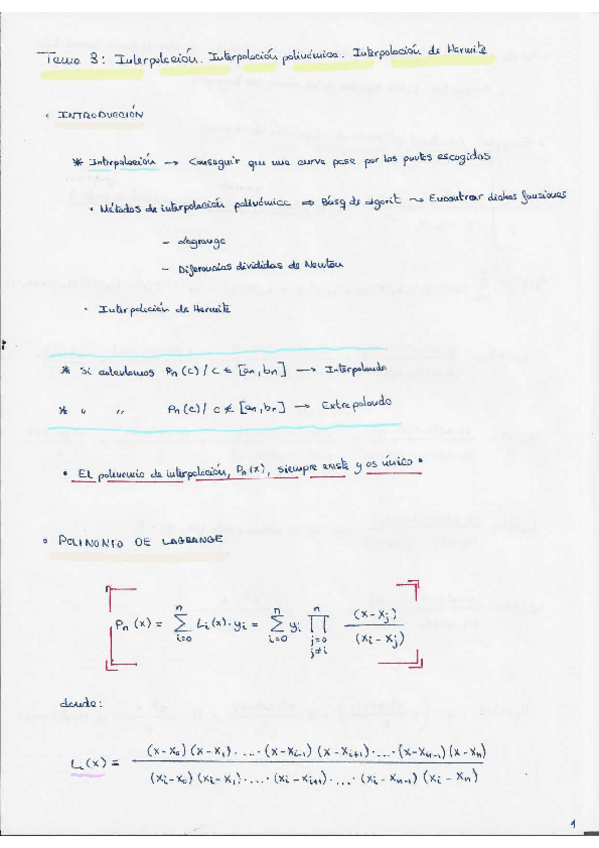 Tema 3: Interpolación. Interpolación polinómica. Interpolación de Hermite
◦ INTRODUCCIÓN
* Interpolación → Conseguir que una curva pase por los puntos escogidos
• Métodos de interpolación polinómica ⇒ Búsq de algorit ⇝ Encontrar dichas funciones
- Lagrange
- Diferencias divididas de Newton
• Interpolación de Hermite
* Si calculamos Pn(c) / c ∈ [an, bn] → Interpolando
* " " Pn(c) / c ∉ [an, bn] → Extrapolando
• El polinomio de interpolación, Pn(x), siempre existe y es único •
◦ POLINOMIO DE LAGRANGE
Pn(x) = ∑_{i=0}^{n} Li(x)·yi = ∑_{i=0}^{n} yi ∏_{j=0, j≠i}^{n} (x-xj) / (xi-xj)
donde:
Li(x) = (x-x0)(x-x1)·...·(x-xi-1)(x-xi+1)·...·(x-xn-1)(x-xn) / (xi-x0)(xi-x1)·...·(xi-xi+1)·...·(xi-xn-1)(xi-xn)
1